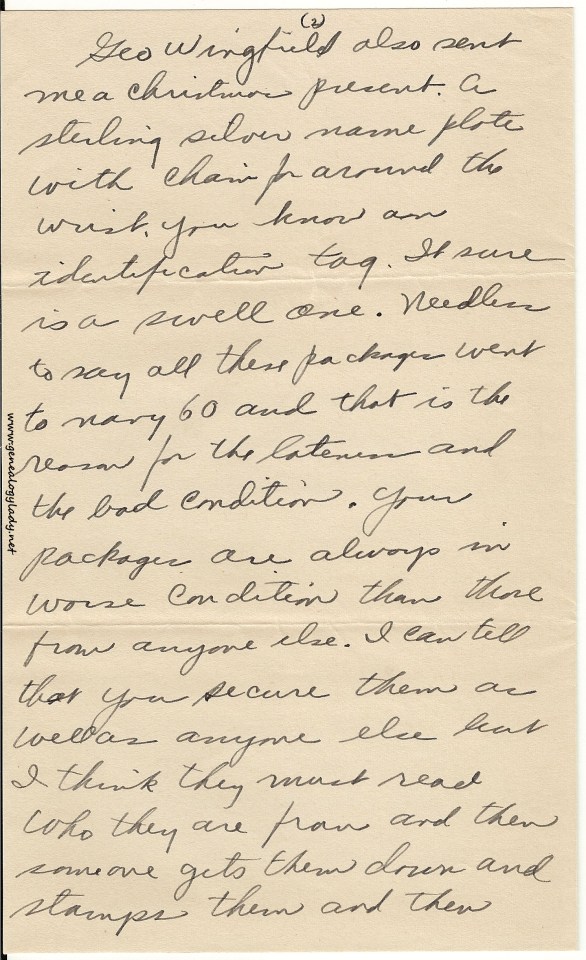 (2)
Geo Wingfield also sent
me a christmas present. A
sterling silver name plate
with chain for around the
wrist, you know an
identification tag. It sure
is a swell one. Needless
to say all these packages went
to navy 60 and that is the
reason for the lateness and
the bad condition. Your
packages are always in
worse condition than those
from anyone else. I can tell
that you secure them as
well as anyone else but
I think they must read
who they are from and then
someone gets them down and
stamps them and then
www.genealogylady.net